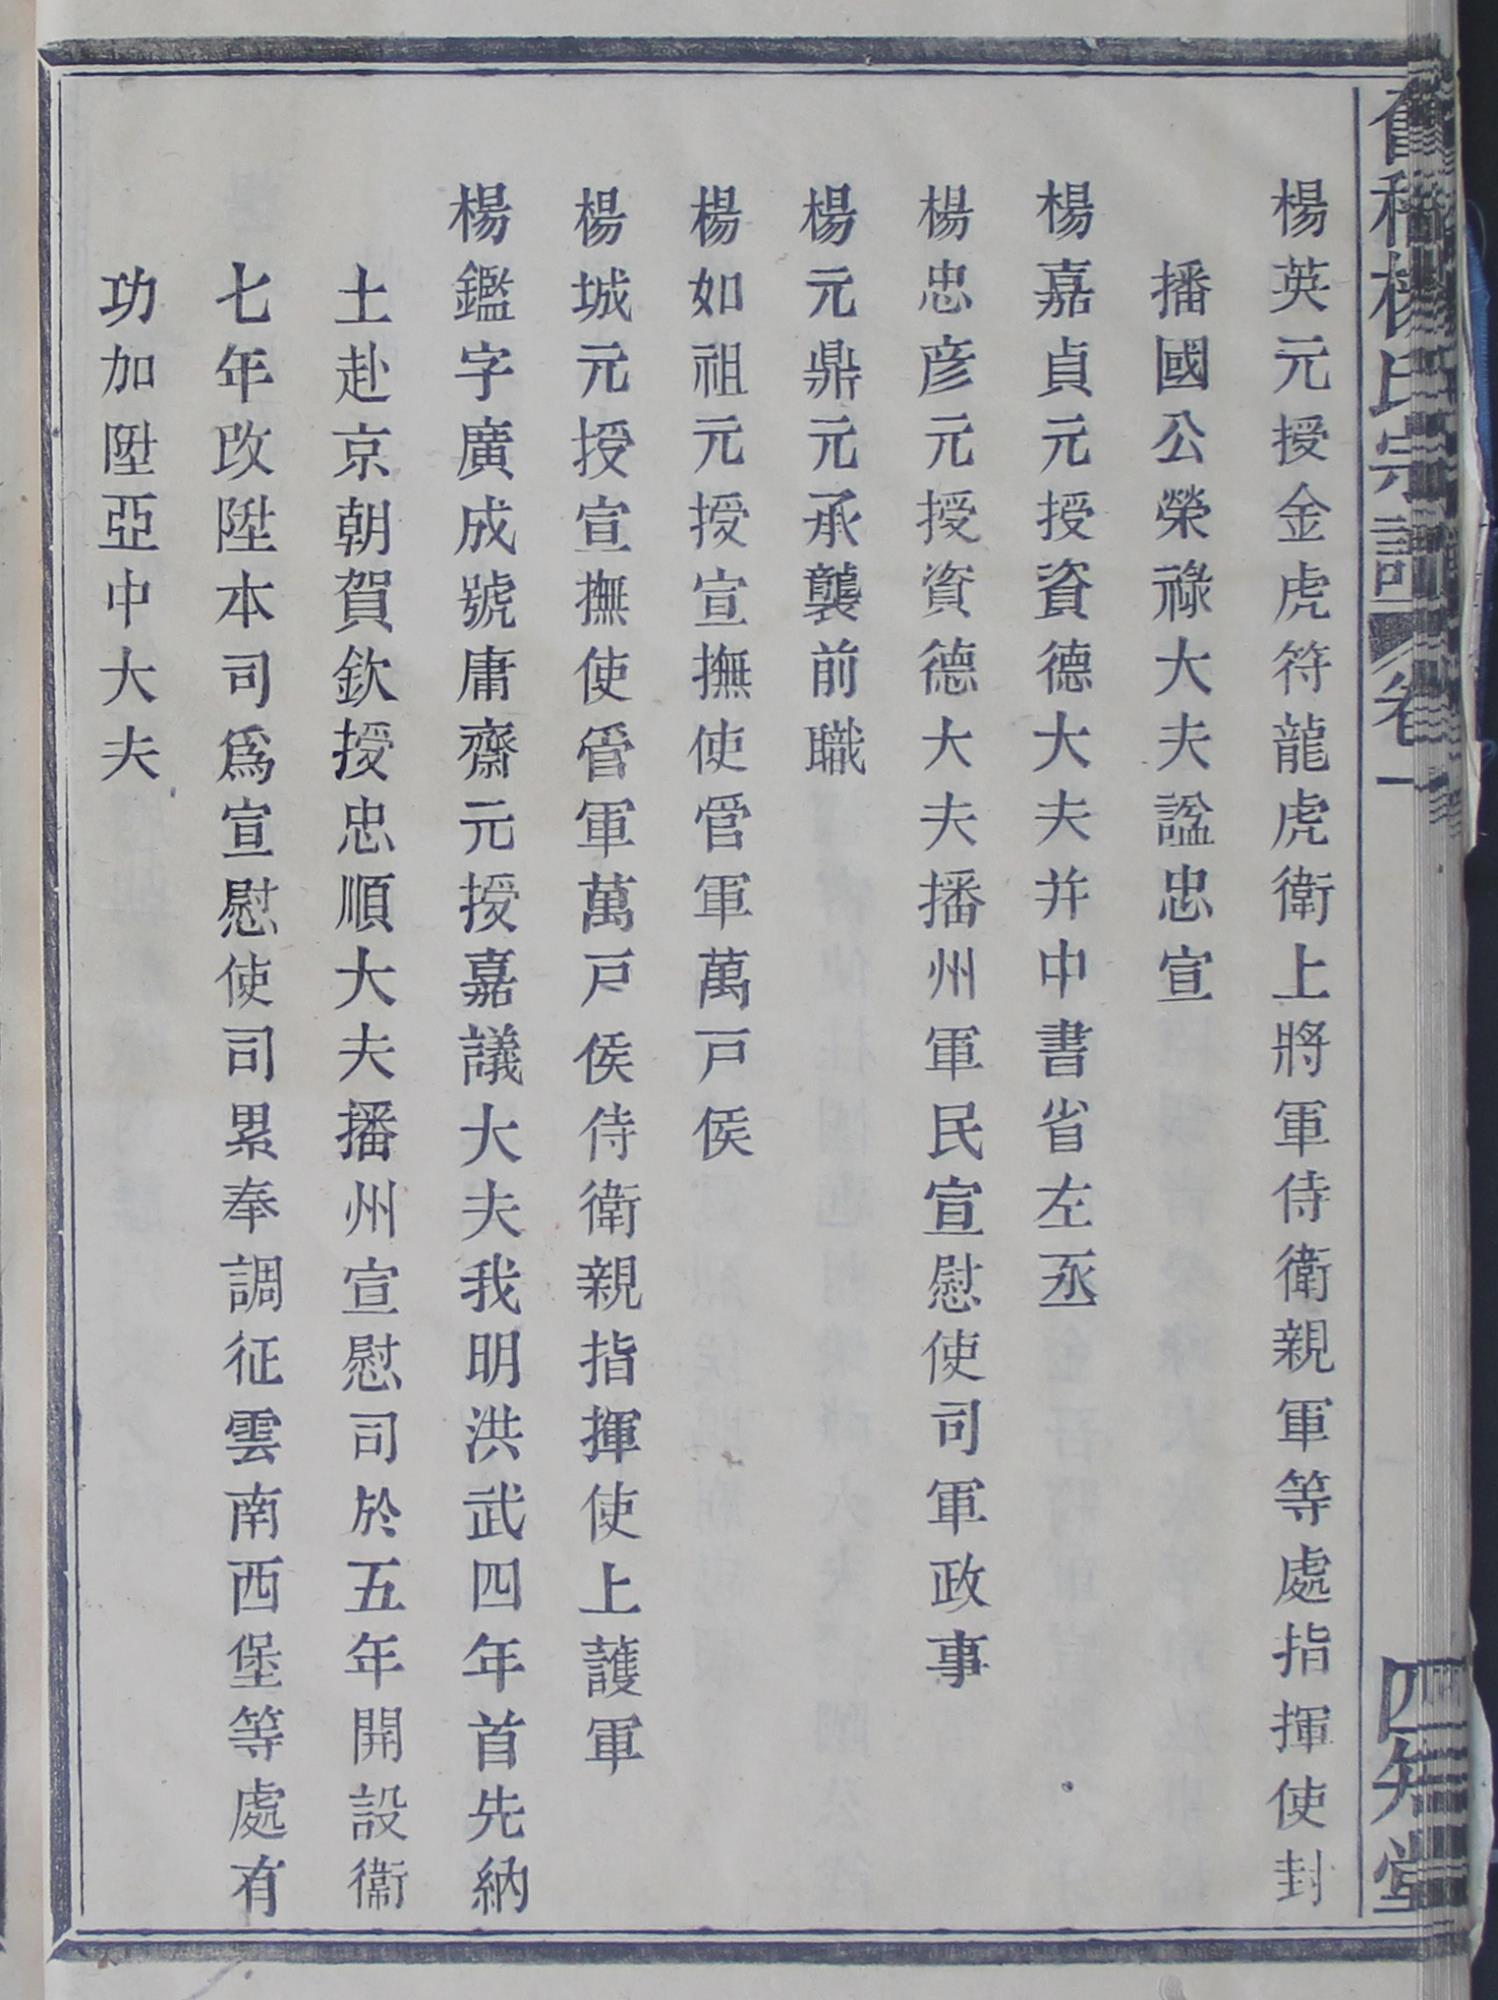 楊氏宗譜 卷一 四知堂
楊英元授金虎符龍虎衛上將軍侍衛親軍等處指揮使封
播國公榮祿大夫諡忠宣
楊嘉貞元授資德大夫并中書省左丞
楊忠彦元授資德大夫播州軍民宣慰使司軍政事
楊元鼎元承襲前職
楊如祖元授宣撫使管軍萬戸侯
楊城元授宣撫使管軍萬戸侯侍衛親指揮使上護軍
楊鑑字廣成號庸齋元授嘉議大夫我明洪武四年首先納
土赴京朝賀欽授忠順大夫播州宣慰司於五年開設衞
七年改陞本司爲宣慰使司累奉調征雲南西堡等處有
功加陞亞中大夫